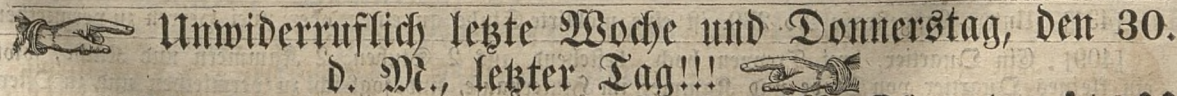 Unwiderruflich letzte Woche und Donnerstag, den 30.
d. M., letzter Tag!!!